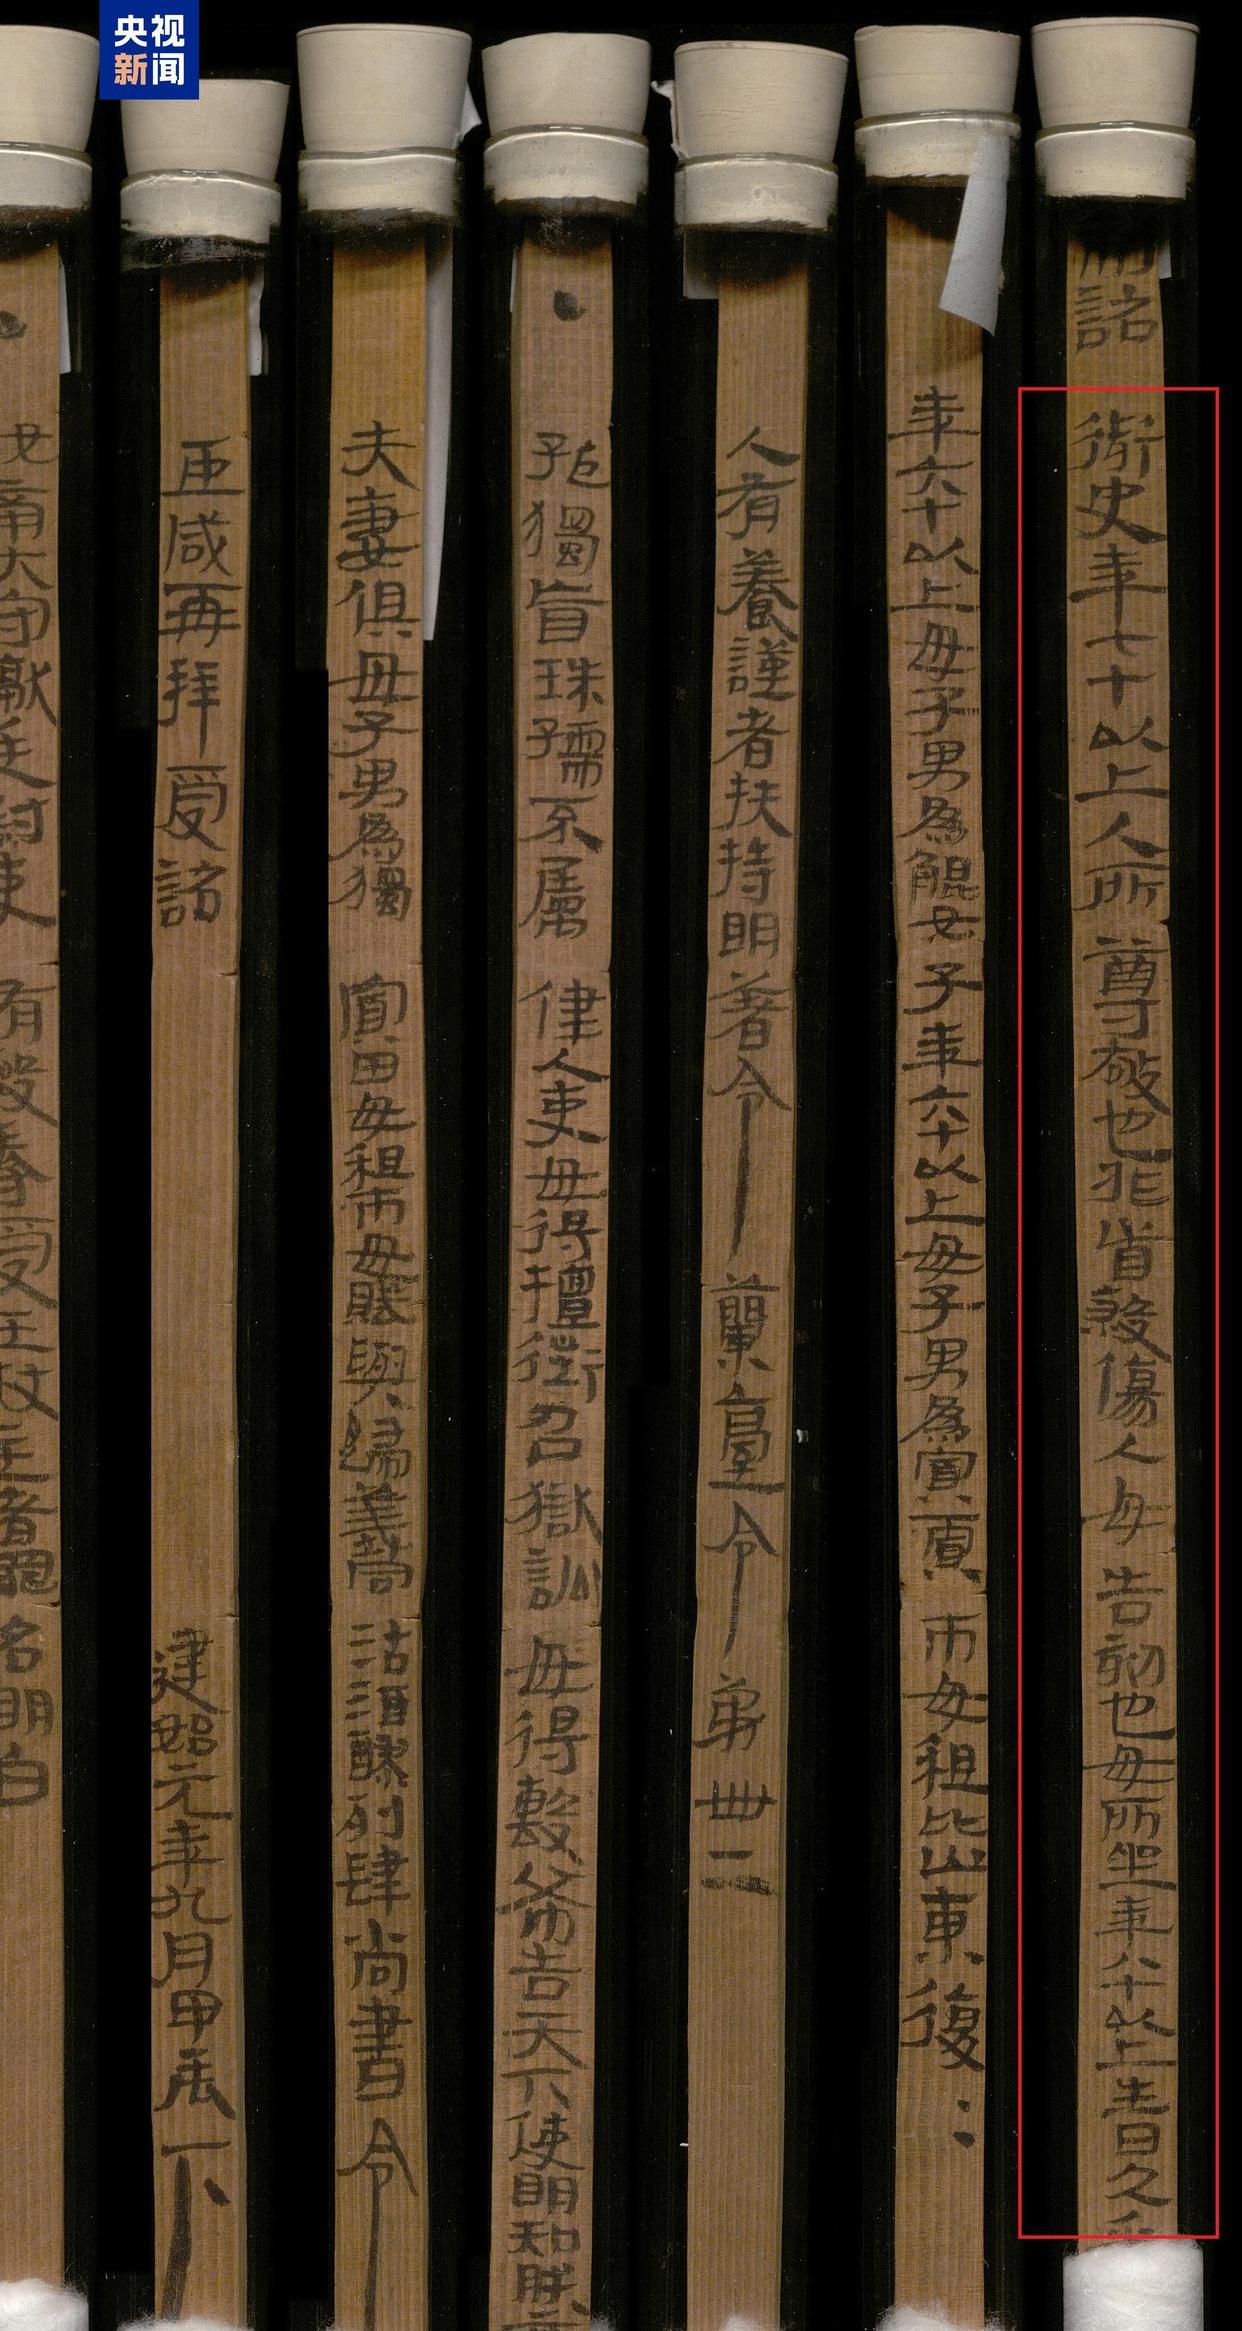 央视
新闻
制詔
御史年七十以上人所尊敬也非首殺傷人毋告劾也毋所坐年八十以上生日久乎
年六十以上毋子男為鯤女子年六十以上毋子男為寡賈市毋租比山東復
人有養謹者扶持明著令蘭臺令第卌二
·孤獨盲珠孺不屬律人吏毋得擅徵召獄訟毋得毄布告天下使明知朕意
夫妻俱毋子男為獨寡田毋租市毋賦與歸義同沽酒醪列肆尚書令
臣咸再拜受詔
建始元年九月甲辰下
·汝南大守讞廷尉吏有毆辱受王杖主者罪名明白